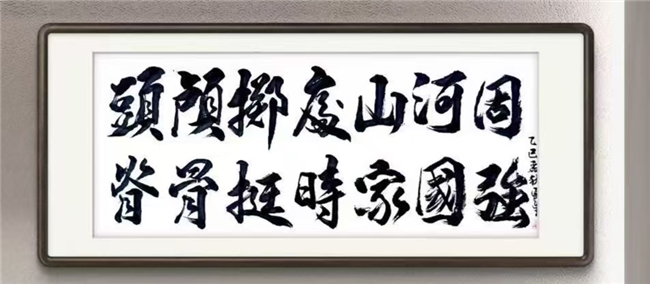 固河山處擲顱頭
強國家時挺骨脊
乙巳